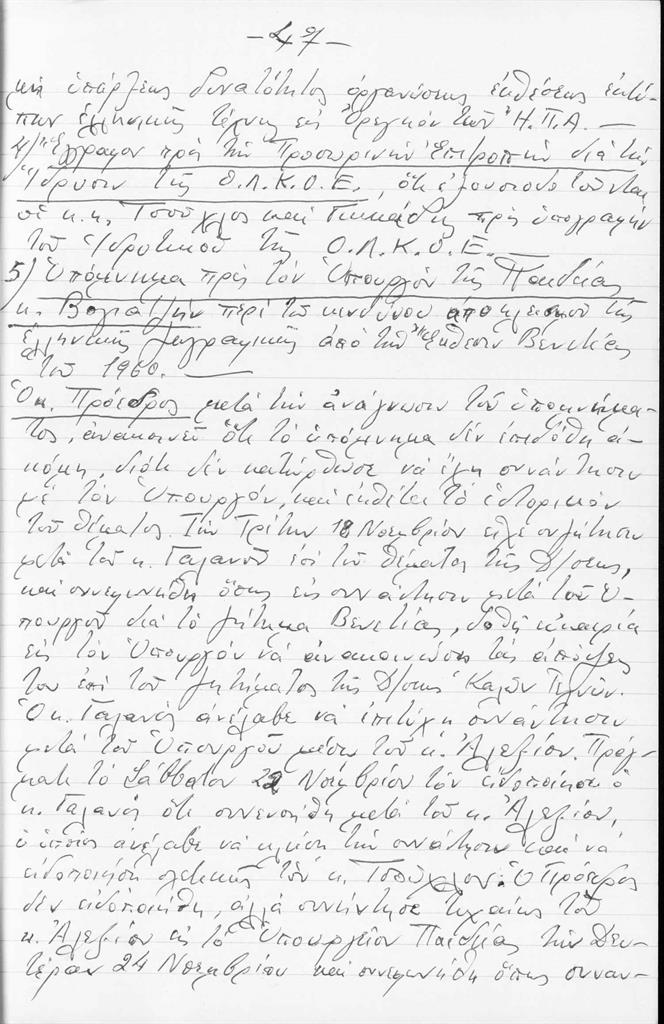 - 47 -
καὶ ὑπάρξεως δυνατότητος ὀργανώσεως ἐκθέσεως ἐκτύ-
πων ἑλληνικῆς τέχνης εἰς Ὀρεγκὸν τῶν Η.Π.Α. —
4) Ἔγγραφον πρὸς τὴν Προσωρινὴν Ἐπιτροπὴν διὰ τὴν
Ἵδρυσιν τῆς Ο.Λ.Κ.Ο.Ε., ὅτι ἐξουσιοδοτοῦνται
οἱ κ.κ. Τσούχλος καὶ πρὸς ὑπογραφὴν
τοῦ Ἱδρυτικοῦ τῆς Ο.Λ.Κ.Ο.Ε. —
5) Ὑπόμνημα πρὸς τὸν Ὑπουργὸν τῆς Παιδείας
κ. Βογιατζῆν περὶ τοῦ κινδύνου ἀποκλεισμοῦ τῆς
ἑλληνικῆς ζωγραφικῆς ἀπὸ τὴν Ἔκθεσιν Βενετίας
τοῦ 1960. —
Ὁ κ. Πρόεδρος μετὰ τὴν ἀνάγνωσιν τοῦ ὑπομνήμα-
τος, ἀνακοινεῖ ὅτι τὸ ὑπόμνημα δὲν ἐπεδόθη ἀ-
κόμη, διότι δὲν κατώρθωσε νὰ ἔχῃ συνάντησιν
μὲ τὸν Ὑπουργόν, καὶ ἐκθέτει τὸ ἱστορικὸν
τοῦ θέματος. Τὴν Τρίτην 18 Νοεμβρίου εἶχε συζήτησιν
μετὰ τοῦ κ. Γαλανοῦ ἐπὶ τοῦ θέματος τῆς Δ/σεως,
καὶ συνεφωνήθη ὅπως εἰς συνάντησιν μετὰ τοῦ Ὑ-
πουργοῦ διὰ τὸ ζήτημα Βενετίας, δοθῇ εὐκαιρία
εἰς τὸν Ὑπουργὸν νὰ ἀνακοινώσῃ τὰς ἀπόψεις
του ἐπὶ τοῦ ζητήματος τῆς Δ/σεως Καλῶν Τεχνῶν.
Ὁ κ. Γαλανὸς ἀνέλαβε νὰ ἐπιτύχῃ συνάντησιν
μετὰ τοῦ Ὑπουργοῦ μέσω τοῦ κ. Ἀλεξίου. Πράγ-
ματι τὸ Σάββατον 22 Νοεμβρίου τὸν εἰδοποίησε ὁ
κ. Γαλανὸς ὅτι συνενοήθη μετὰ τοῦ κ. Ἀλεξίου,
ὁ ὁποῖος ἀνέλαβε νὰ κλείσῃ τὴν συνάντησιν καὶ νὰ
εἰδοποιήσῃ σχετικῶς τὸν κ. Τσούχλον. Ὁ Πρόεδρος
δὲν εἰδοποιήθη, ἀλλὰ συνήντησε τυχαίως τὸν
κ. Ἀλεξίου εἰς τὸ Ὑπουργεῖον Παιδείας τὴν Δευ-
τέραν 24 Νοεμβρίου καὶ συνεφωνήθη ὅπως συναν-